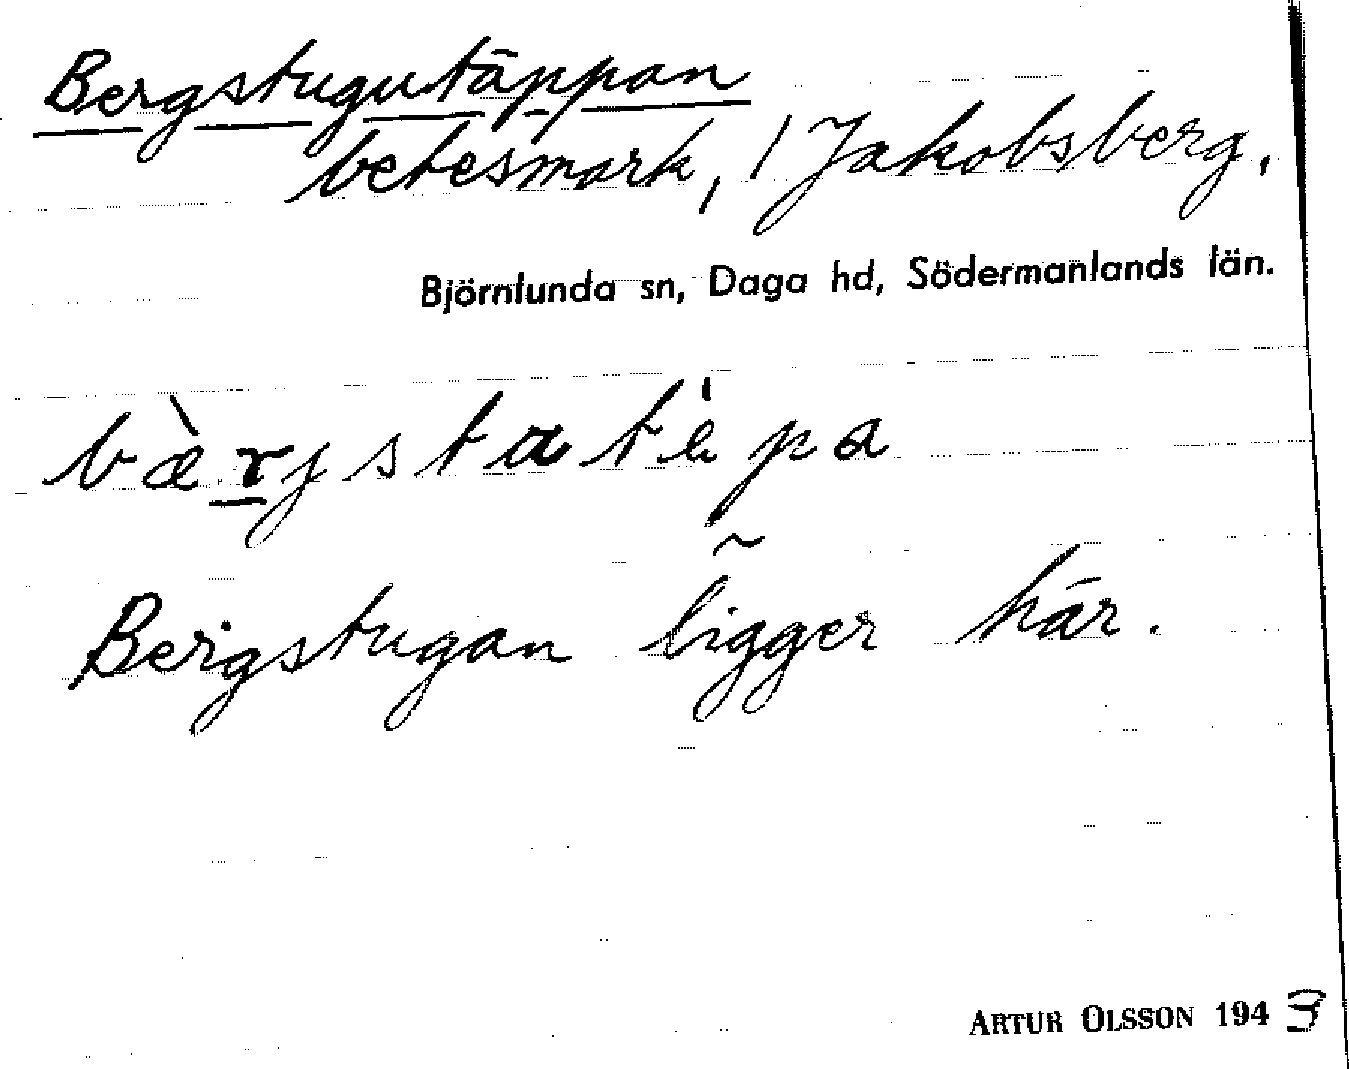 Bergstugutäppan
betesmark, / Jakobsberg.
Björnlunda sn, Daga hd, Södermanlands län.
bæ̀rjstatèpa
Bergstugan ligger här.
ARTUR OLSSON 1943